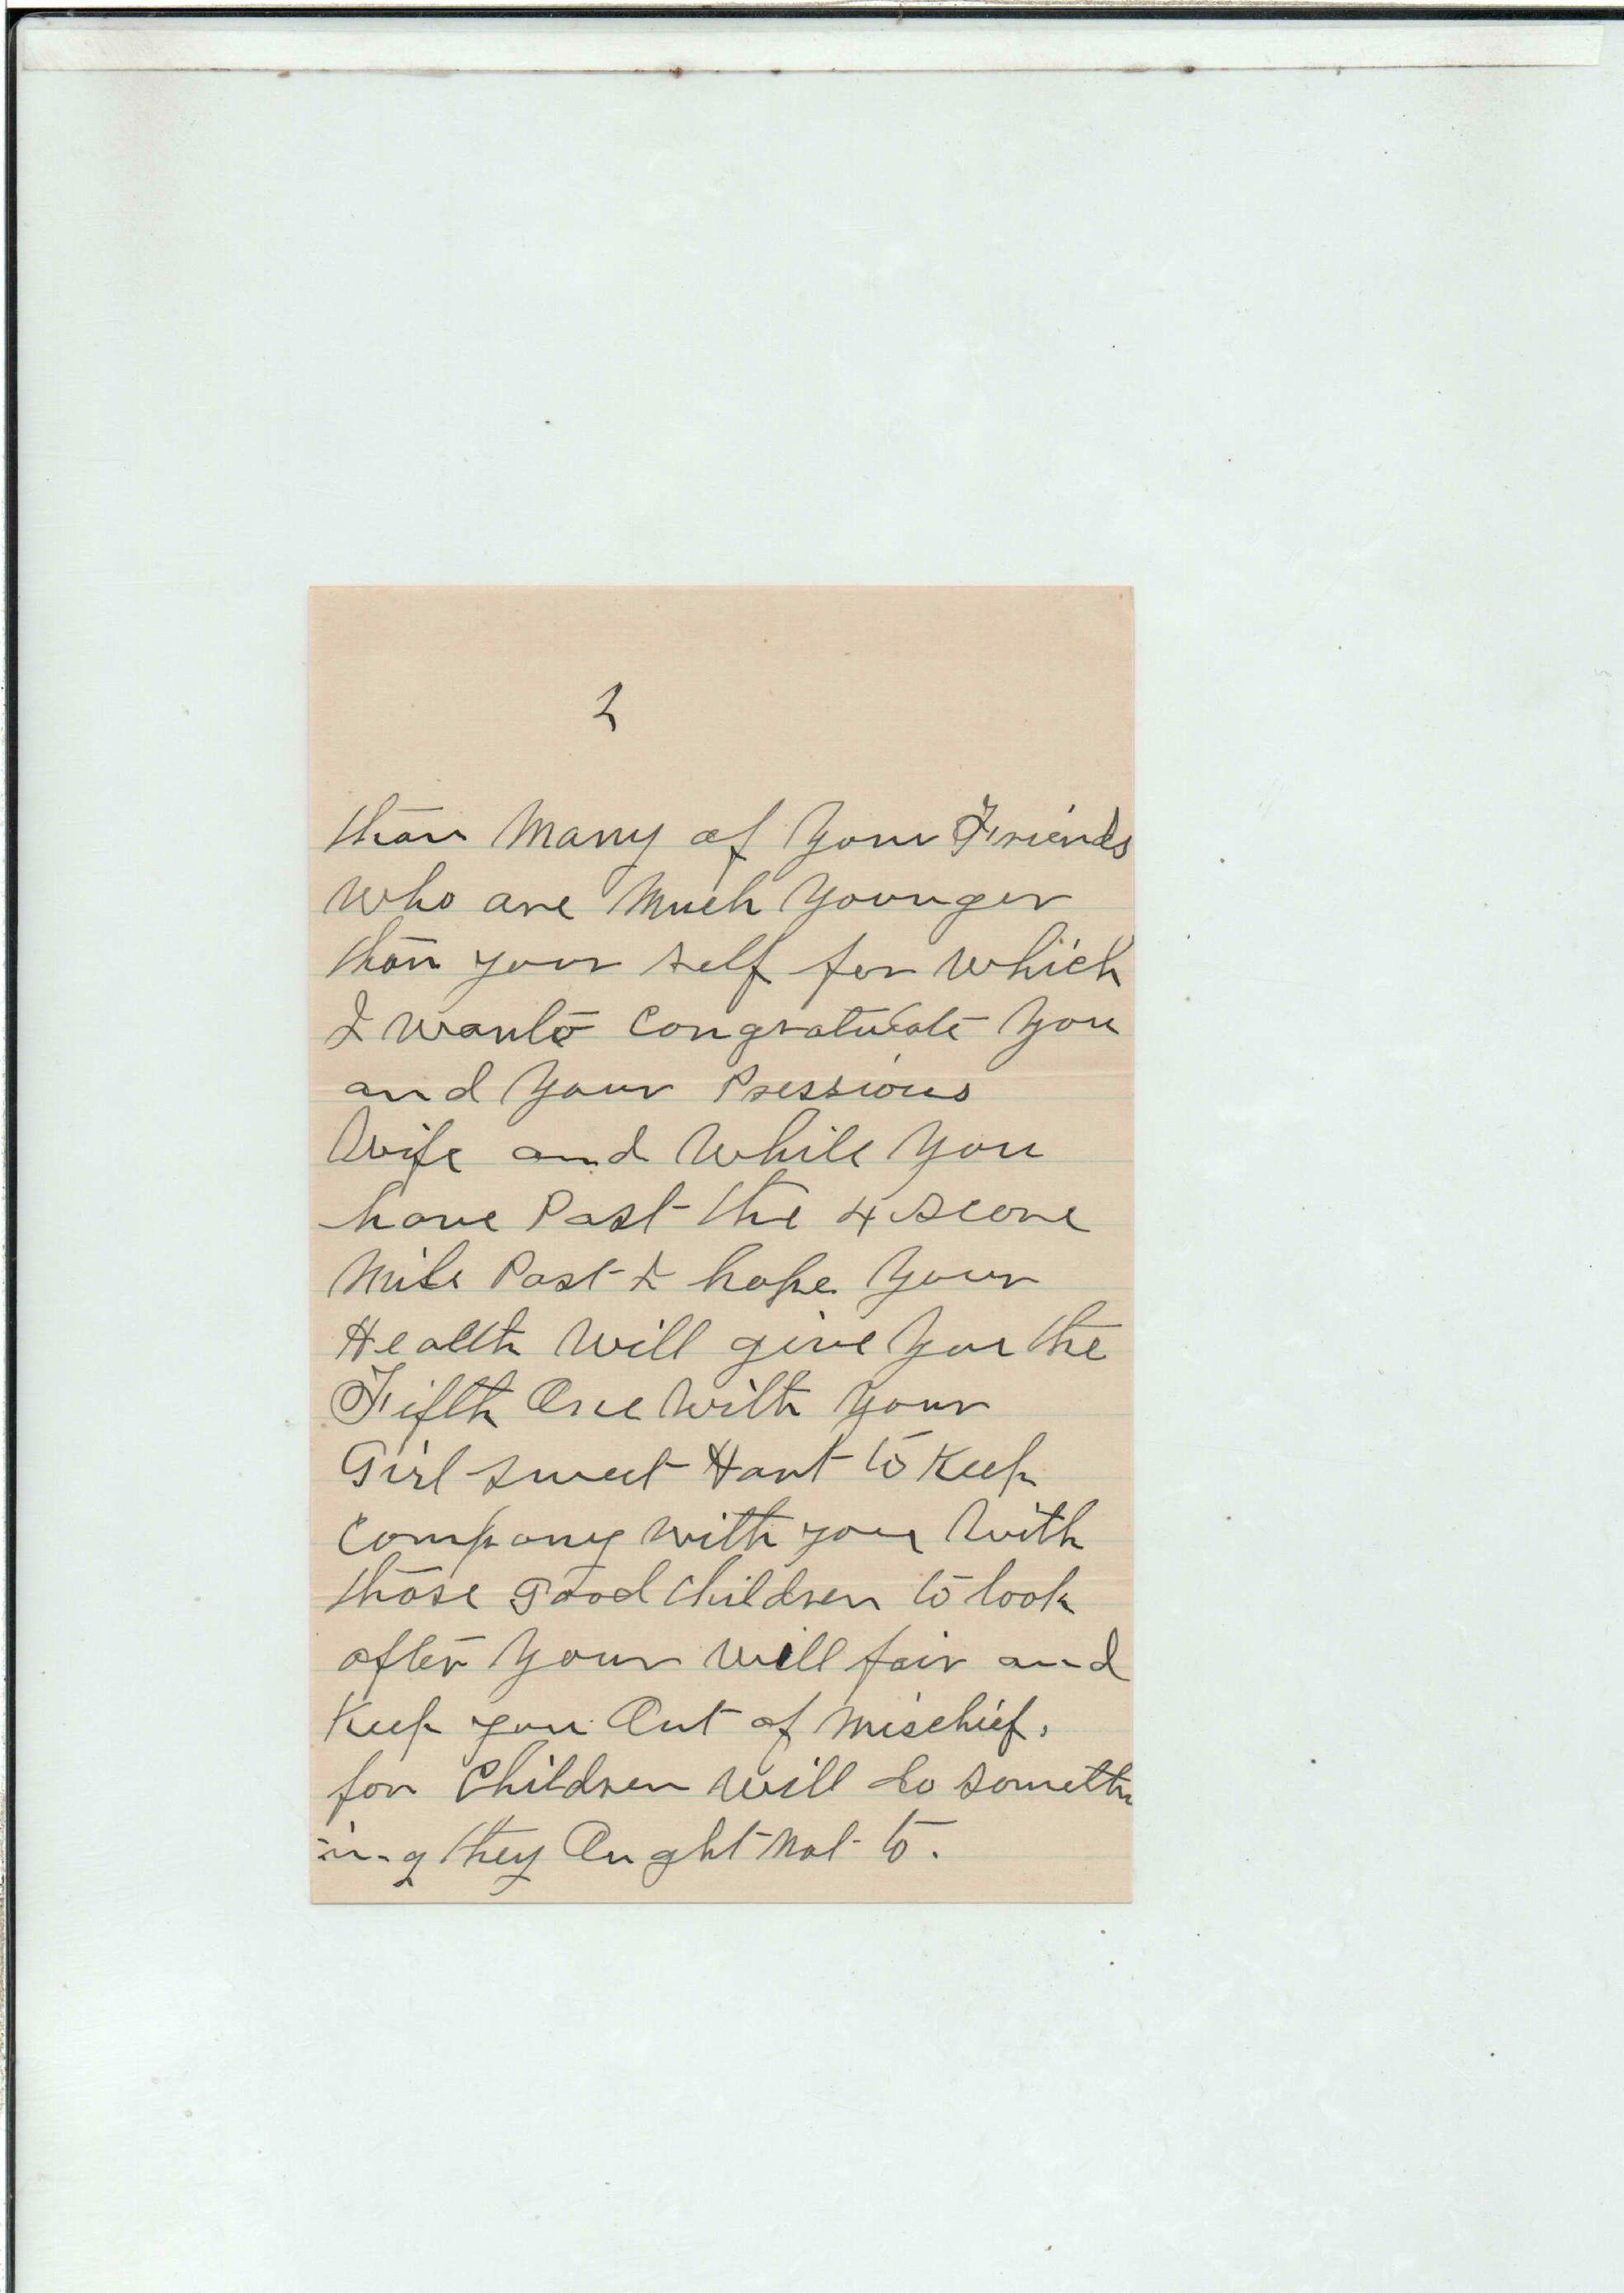 2
than Many of Your Friends
Who are Much Younger
than your self for Which
I wanto Congratulate You
and Your Pressious
Wife and While You
have Past the 4 score
Mile Post I hope Your
Health Will give You the
Fifth One With Your
Girl sweet Hart to Keep
Company with you With
those good Children to look
after Your well fair and
Keep you Out of Mischief.
for Children Will do someth
ing they Ought Not to.